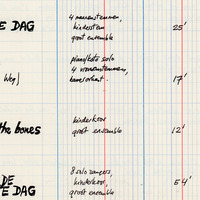 4 mannenstemmen,
E DAG kinderstem 25'
groot ensemble
pianofte solo
4 vrouwenstemmen,
Wky) kamerorkest. 17'
kinderkoor
the bones groot ensemble 12'
8 solo zangers,
DE kinderkoor, 54'
TE DAG groot ensemble